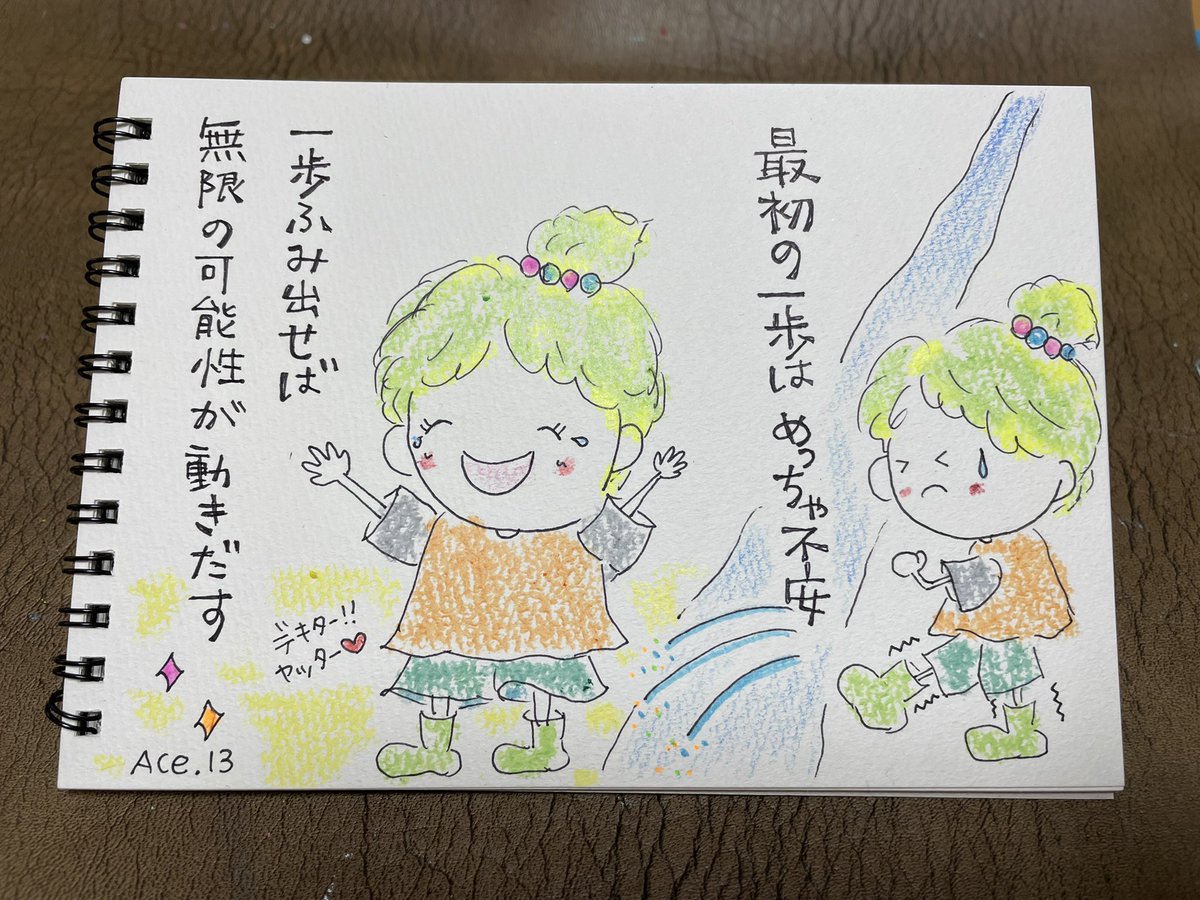 最初の一歩は めっちゃ不安
一歩ふみ出せば
無限の可能性が動きだす
デキター!!
ヤッター
Ace.13